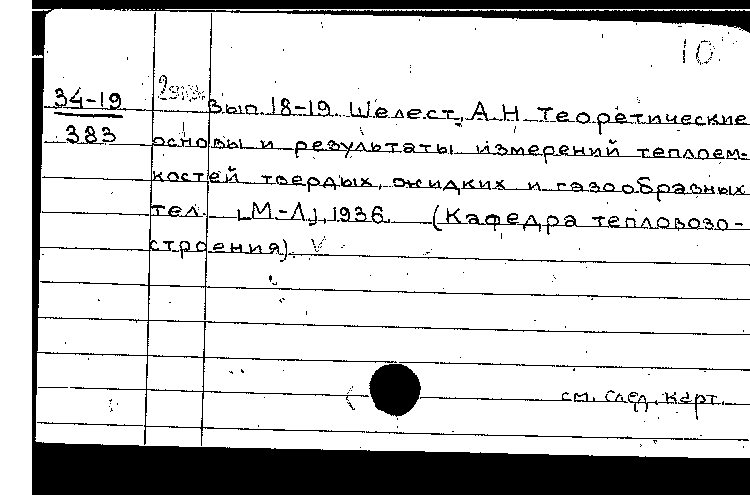 10
34-19
383
2 экз. Вып. 18-19. Шелест, А.Н. Теоретические
основы и результаты измерений теплоем-
костей твердых, жидких и газообразных
тел. [М-Л], 1936. (Кафедра тепловозо-
строения).
см. след. карт.